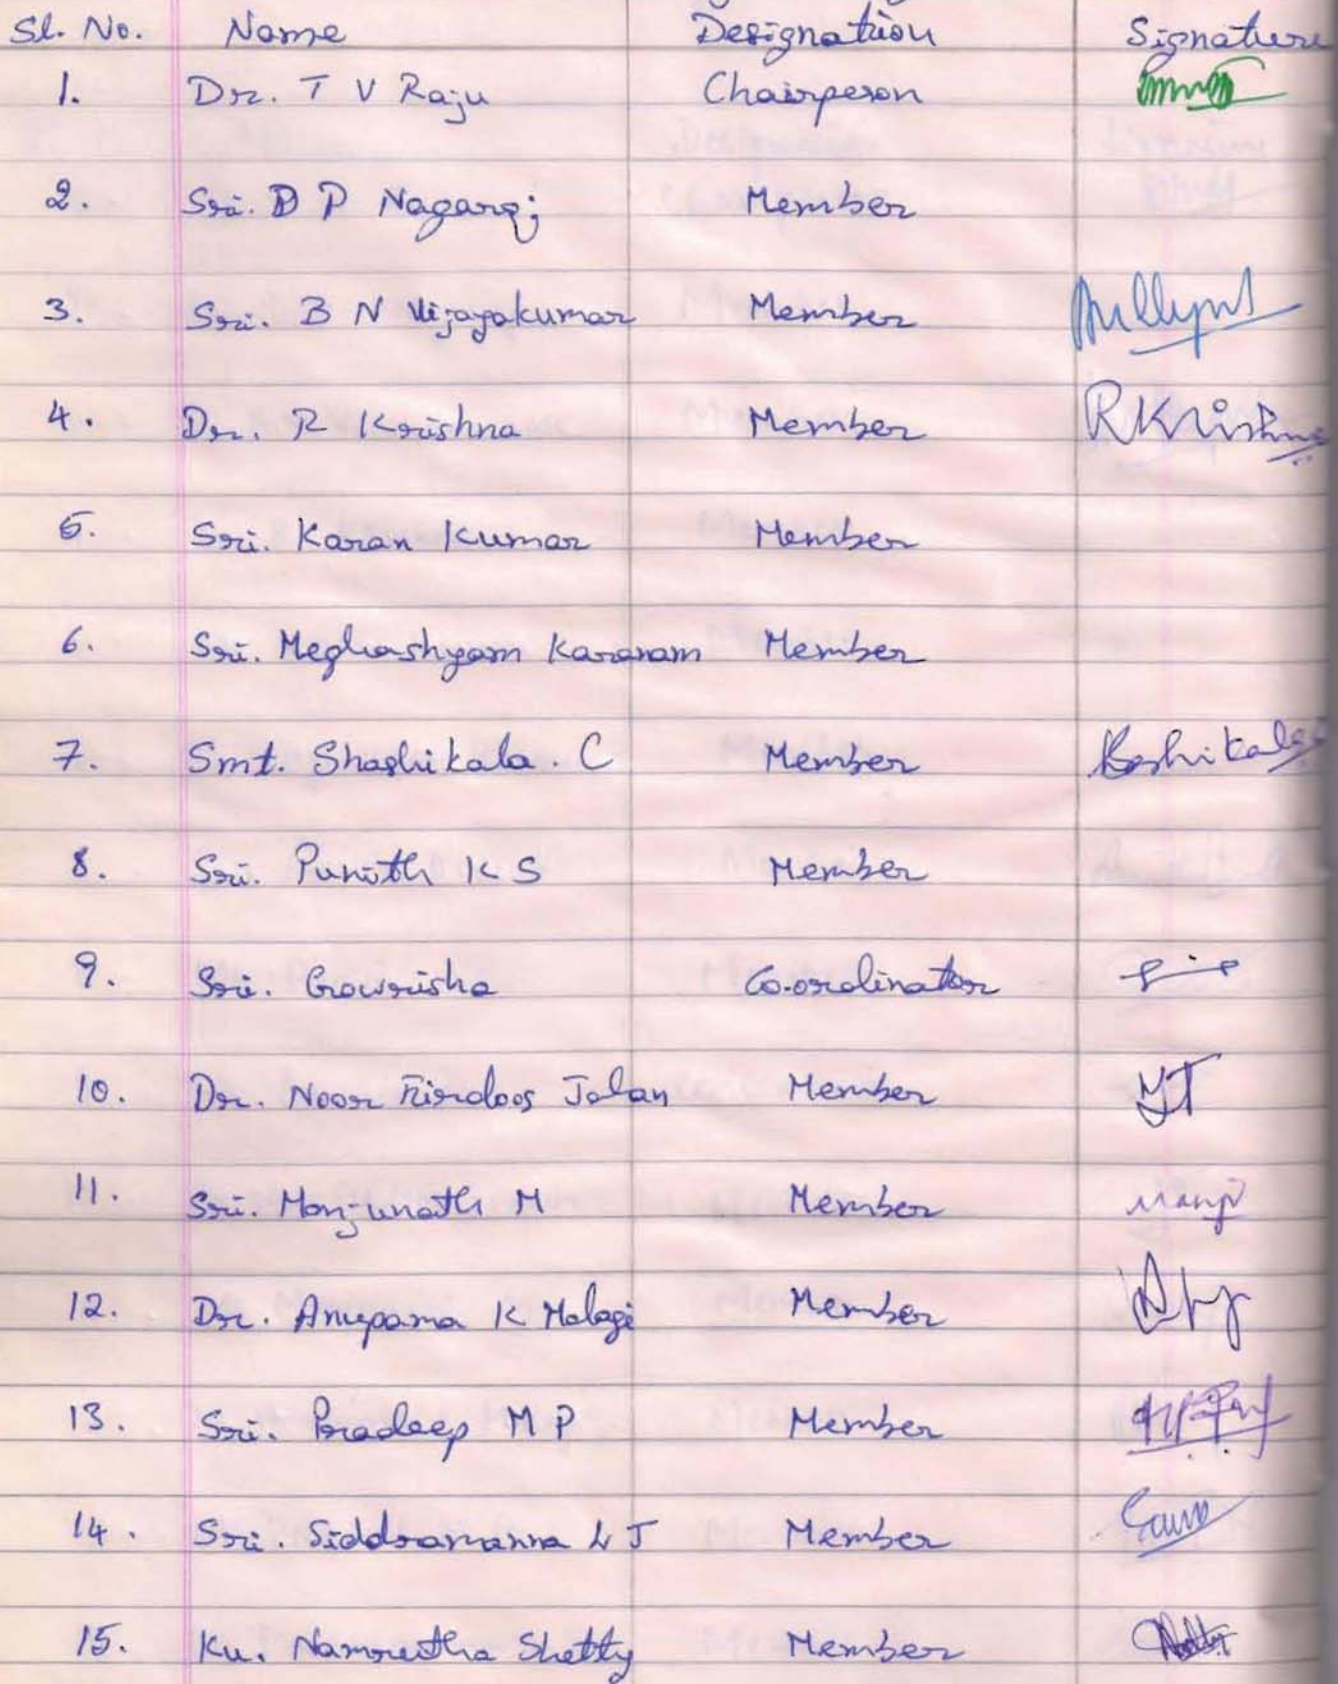 Sl. No. Name Designation Signature
1. Dr. T V Raju Chairperson
2. Sri. D P Nagaraj Member
3. Sri. B N Vijayakumar Member
4. Dr. R Krishna Member RKrishna
5. Sri. Karan Kumar Member
6. Sri. Meghashyam Karanam Member
7. Smt. Shashikala. C Member
8. Sri. Punith K S Member
9. Sri. Gowrisha Co-ordinator
10. Dr. Noor Firdoos Jahan Member
11. Sri. Manjunath M Member Manju
12. Dr. Anupama K Malagi Member
13. Sri. Pradeep M P Member
14. Sri. Siddramanna L J Member
15. Ku. Namreetha Shetty Member